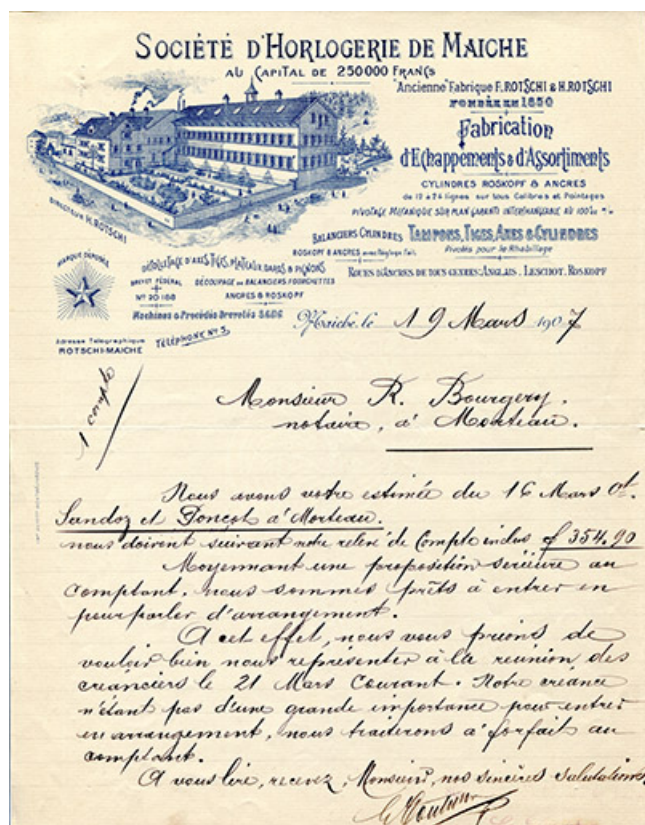 SOCIÉTÉ D'HORLOGERIE DE MAICHE
AU CAPITAL DE 250000 FRANCS
"Ancienne" Fabrique F. ROTSCHI & H. ROTSCHI
FONDÉE EN 1850
Fabrication
d'Echappements & d'Assortiments
CYLINDRES ROSKOPF & ANCRES
de 10 à 24 lignes sur tous Calibres et Pointages
PIVOTAGE MÉCANIQUE SUR PLAN GARANTI INTERCHANGEABLE AU 100me %
BALANCIERS CYLINDRES
ROSKOPF & ANCRES avec Réglages faits
TAMPONS, TIGES, AXES & CYLINDRES
Pivotés pour le Rhabillage
ROUES D'ANCRES DE TOUS GENRES: ANGLAIS. LESCHOT. ROSKOPF
DIRECTEUR H. ROTSCHI
MARQUE DÉPOSÉE
DÉCOLLETAGE D'AXES, TIGES, PLATEAUX, DARDS & PIGNONS
BREVET FÉDÉRAL
No 20188
DÉCOUPAGE DE BALANCIERS FOURCHETTES
ANCRES & ROSKOPF
Machines & Procédés Brevetés SGDG
Adresse Télégraphique
ROTSCHI-MAICHE
TÉLÉPHONE No 3
Maiche, le 19 Mars 1907
1 compte
Monsieur R. Bourgery.
notaire, à Morteau.
Nous avons votre estimée du 16 Mars Ct.
Sandoz et Donçot à Morteau.
nous doivent suivant notre relevé de Compte inclus f 354,90
Moyennant une proposition sérieuse au
comptant, nous sommes prêts à entrer en
pourparler d'arrangement.
A cet effet, nous vous prions de
vouloir bien nous représenter à la réunion des
créanciers le 21 Mars Courant. Notre créance
n'étant pas d'une grande importance pour entrer
en arrangement, nous traiterons à forfait au
comptant.
A vous lire, recevez, Monsieur, nos sincères salutations.